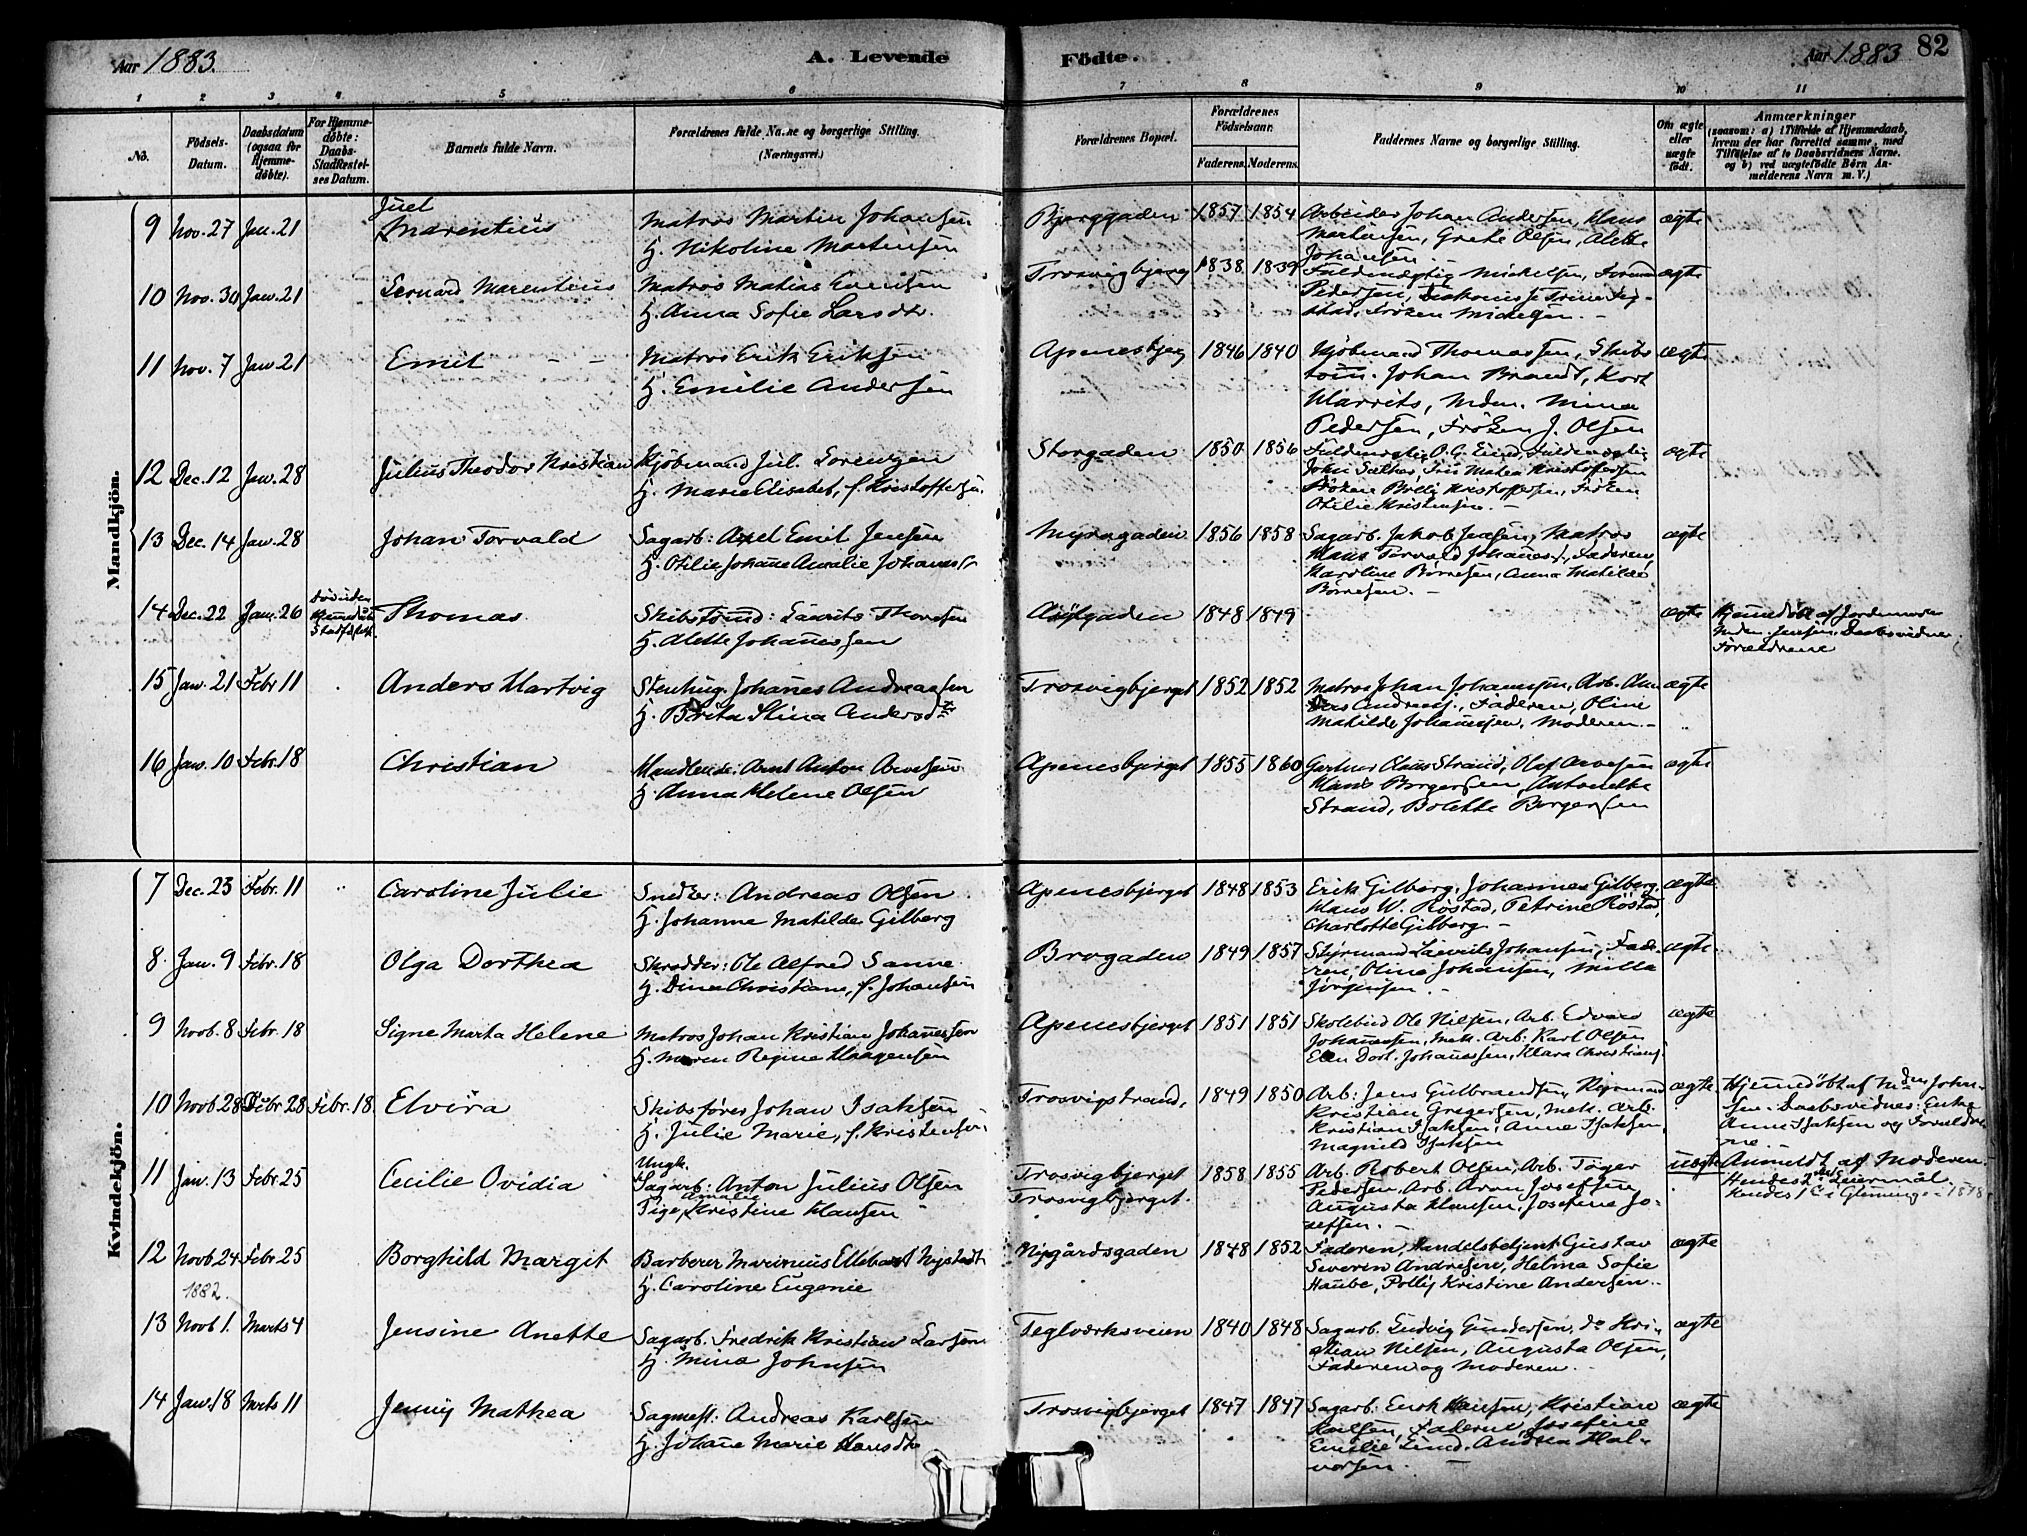 Aar 1883.
A. Levende
Födte.
Aar 1883
82
1 2 3 4 5 6 7 8 9 10 11
No.
Födsels-
Datum.
Daabsdatum
(ogsaa for
Hjemme-
døbte).
For Hjemme-
døbte:
Daabs-
Stadfæstel-
ses Datum.
Barnets fulde Navn.
Forældrenes fulde Navne og borgerlige Stilling.
(Næringsvei.)
Forældrenes Bopæl.
Forældrenes
Födselsaar.
Faderens. Moderens.
Faddernes Navne og borgerlige Stilling.
Om ægte
eller
uægte
født.
Anmærkninger
(saasom: a) i Tilfælde af Hjemmedaab,
hvem der har forrettet samme, med
Tilføielse af to Daabsvidners Navne,
og b) ved uægtefødte Børn An-
melderens Navn m. V.)
Mandkjön.
9 Nov. 27 Jan. 21 Juel
Marentius
Matros Martin Johansen
H. Nikoline Martensen
Bjerggaden 1857 1854
Arbeider Johan Andersen, Klaus
Martinsen, Grete Olsen, Alette
Johansen. -
ægte
10 Nov. 30 Jan. 21 Leonard Marentius
Matros Matias Evensen
H. Anna Sofie Larsdtr.
Trosvigbjerg 1838 1839
Fuldmægtig Mickelsen,
Pedersen, Diakonisse Trine
Frøken Mickelsen. -
ægte
11 Nov. 7 Jan. 21 Emil - -
Matros Erik Eriksen
H. Emilie Andersen
Apenesbjerg 1846 1840
Kjøbmand Thomassen, Skibs
tøm. Johan Brandt, Kort
Klarrits, Mdm. Mina
Pedersen, Frøken J. Olsen
ægte
12 Dec. 12 Jan. 28 Julius Theodor Kristian
Kjøbmand Jul. Lorenzen
H. Marie Elisabet, f. Kristoffersen.
Storgaden 1850 1856
Fuldmægtig O. G. Lund, Fuldmægtig
John Frk Matea Kristoffersen
Frøken Bolly Kristoffersen, Frøken
Otilie Kristensen. -
ægte
13 Dec. 14 Jan. 28 Johan Torvald
Sagarb: Axel Emil Jensen
H. Otilie Johane Amalie Johannes
Myragaden 1856 1858
Sagarb. Jakob Jensen, Matros
Klaus Torvald Johannes., Faderen,
Karoline Børresen, Anna Matilde
Børresen. -
ægte
14 Dec. 22 Jan. 26 død uden
Stadfæstelse
Thomas
Skibstømd: Laurits Thoresen
H. Alette Johannessen
1848 1849
ægte
Hjemmedøbt af Jordemoder
Mdm. Jensen. Daabsvidner:
Forældrene
15 Jan. 21 Febr 11 Anders Hartvig
Stenhug. Johanes Andreassen
H. Brita Stina Andersdtr
Trosvigbjerget 1852 1852
Matros Johan Johannessen, Arb. An-
ders Andreas., Faderen, Oline
Matilde Johannessen, Moderen. -
ægte
16 Jan. 10 Febr. 18 Christian
Handlende: Arnt Anton Arvesen
H. Anna Helene Olsen
Apenesbjerget 1855 1860
Gartner Claus Strand, Olaf Arvesen
Hans Borgersen, Antonette
Strand, Bolette Borgersen
ægte
Kvindekjön.
7 Dec. 23 Febr. 11 Caroline Julie
Snedker: Andreas Olsen
H. Johanne Matilde Gilberg
Apenesbjerget 1848 1853
Erik Gilberg, Johannes Gilberg,
Klaus W. Røstad, Petrine Røstad,
Charlotte Gilberg -
ægte
8. Jan. 9 Febr. 18 Olga Dorthea
Skrædder: Ole Alfred Sanne
H. Dina Christiane, f. Johansen
Brogaden 1849 1857
Styrmand Laurits Johansen, Fade-
ren, Oline Johansen, Milla
Jörgensen. -
ægte.
9 Novb. 8 Febr. 18 Signe Marta Helene
Matros Johan Kristian Johannessen
H. Maren Regine Haagensen
Apenesbjerget 1851 1851
Skolebud Ole Nilsen, Arb. Edvard
Johannessen, Mek. Arb: Karl Olsen
Elen Dort. Johannessen, Klara Christians.
ægte
10 Novb. 28 Febr. 28 Febr. 18 Elvira
Skibsfører Johan Isaksen
H. Julie Marie, f. Kristensen
Trosvigstrand. 1849 1850
Arb: Jens Gulbrandsen, Styrmand
Kristian Gregersen, Mek. Arb:
Kristian Isaksen, Anne Isaksen,
Magnild Isaksen
ægte.
Hjemmedøbt af Mdm John-
sen. Daabsvidner: Enke
Anne Isaksen og Forældre-
ne. -
11 Jan. 13 Febr. 25 Cecilie Ovidia
Ungk.
Sagarb: Anton Julius Olsen
Pige, Amalie Kristine Klausen
Trosvigbjerget
Trosvigbjerget.
1858 1855
Arb. Robert Olsen, Arb. Töger
Pedersen, Arb. Aron Josefsen
Augusta Klausen, Josefine Jo-
sefsen. -
uægte
Anmeldt af Moderen.
Hendes 2det Leiermål.
Hendes 1ste i Glemminge i 1878
12 Novb 24 Febr. 25 Borghild Margit
1882.
Barberer Marinius Ellebært Nystedt
H. Caroline Eugenie
Nygårdsgaden 1848 1852
Faderen, Handelsbetjent Gustav
Severin Andresen, Helma Sofie
Haube, Polly Kristine Andersen..
ægte
13 Novb 1. Marts 4 Jensine Anette
Sagarb. Fredrik Kristian Larsen
H. Mina Johnsen
Teglverksveien 1840 1848
Sagarb. Ludvig Gundersen, do Kri-
stian Nilsen, Augusta Olsen,
Faderen og Moderen. -
ægte
14 Jan. 18 Mrts 11 Jenny Mathea
Sagmest: Andreas Karlsen
H. Johane Marie Hansdtr
Trosvigbjerget 1847 1847
Sagarb. Erik Hansen, Kristiane
Karlsen, Faderen, Josefine
Emilie Lund, Andrea Hal-
vorsen. -
ægte